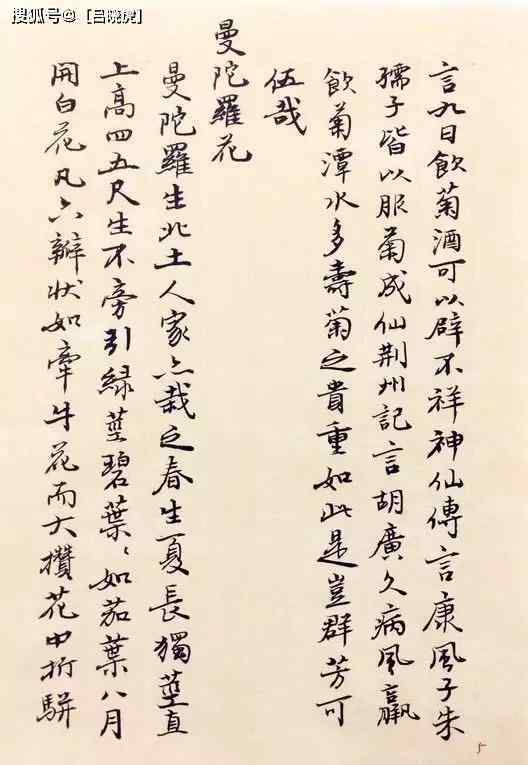 搜狐号@【吕晓虎】
言九日飲菊酒可以辟不祥神仙傳言康風子朱
孺子皆以服菊成仙荆州記言胡廣久病風羸
飲菊潭水多壽菊之貴重如此是豈群芳可
伍哉
曼陀羅花
曼陀羅生北土人家亦栽之春生夏長獨莖直
上高四五尺生不旁引緑莖碧葉〻如茄葉八月
開白花凡六瓣狀如牽牛花而大攢花中折駢
5